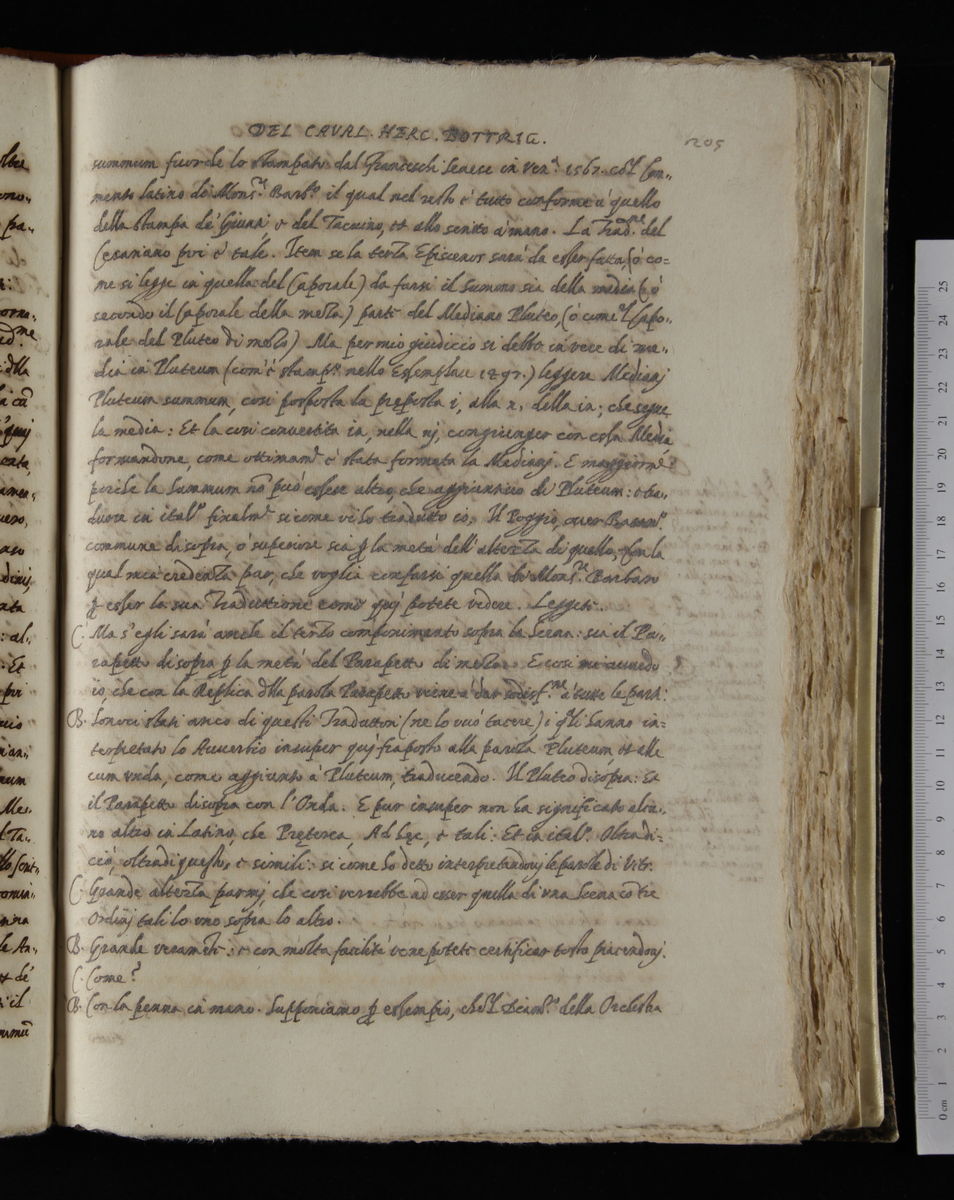 DEL CAVAL. HERC. BOTTRIG.
205
summum fuor che lo stampato dal Franceschi Senese in Ven.ª 1567. co'l Com„
mento latino di Mons.r Barb.º il qual nel resto è tutto conforme a' quello
della stampa de' Giunti & del Taccuino, et allo scritto à mano. La Trad.ne del
Cesariano poi è tale. Item se la terza Episcenos sarà da esser fatta, (ò co=
me si legge in quella del Caporale) da farsi il summo sia della media (ò
secondo il Caporale della meza) parte del Mediano Pluteo, (ò come'l Capo„
rale del Pluteo di mezo) Ma per mio giudiccio si debbe in vece di me„
dia in Pluteum (com'è stamp.º nello Essemplare 1497.) leggere Medianj
Pluteum summum, così posposta la preposta i, alla n, della in; che segue
la media: Et la così convertita in, nella nj, congiunger con essa Media
formandone, come ottimam.e è stata formata la Medianj. E maggiorm.e
perche la Summum nõ può essere altro, che aggiuntivo di Pluteum: tra„
durre in ital.º finalm.e si come vi ho tradotto io. Il Poggio, over
commune di sopra, ò superiore sia p la metà dell'altezza di quello, con la
qual mia credenza par, che voglia confarsi quella di Mons.r Barbaro
p esser la sua Traduttione come quì potete vedere. Leggete.
C. Ma s'egli sarà anche il terzo componimento sopra la Scena: sia il Pa„
rapetto di sopra p la metà del Parapetto di mezo. Et così mi avvedo
io, che con la Replica dlla parola Parapetto viene a' dar sodisf.ne a' tutte le parti:
B. Sonovi stati anco di questi Traduttori (ne lo vuò tacere) i q.li hanno in=
terpretato lo Avverbio insuper quj fraposto alla parola Pluteum, et alle
cum unda, come aggiunto à Pluteum, traducendo. Il Pluteo di sopra: Et
il Parapetto di sopra con l'Onda. E pur insuper non ha significato alcu„
no altro in Latino, che Pręterea, Ad hęc, e tali: Et in ital.º Oltra di=
ciò, oltra di questo, e simili: si come ho detto interpretandovj le parole di Vitr.
C. Grande altezza parmj, che così verrebbe ad esser quella di una Scena cõ tre
Ordinj tali lo uno sopra lo altro.
B. Grande veramẽte: e con molta facilità vene potete certificar tosto piacendovj.
C. Come?
B. Con la penna in mano. Supponiamo p essempio, che'l Diam.º della Orchestra